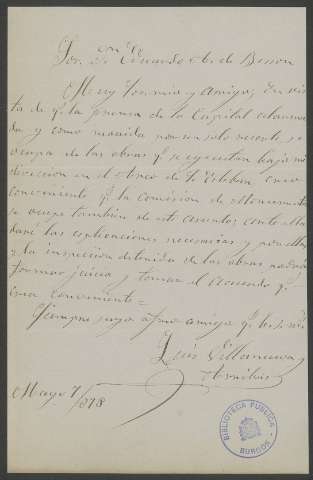 Sor. Dn Eduardo A. de Besson
Muy Sor. mio y amigo: En vis-
ta de q. la prensa de la Capital alarma-
da y como movida por un solo resorte, se
ocupa de las obras q. se ejecutan bajo mi
direccion en el Arco de S. Esteban, creo
conveniente q. la Comision de Monumentos
se ocupe tambien de este asunto; ante ella
daré las esplicaciones necesarias y por ellas
y la inspeccion detenida de las obras podrá
formar juicio y tomar el acuerdo q.
crea conveniente =
Siempre suyo afmo amigo q. b. s. m.
Luis Villanueva y
Arribas
Mayo 7/878
BIBLIOTECA PUBLICA
BURGOS